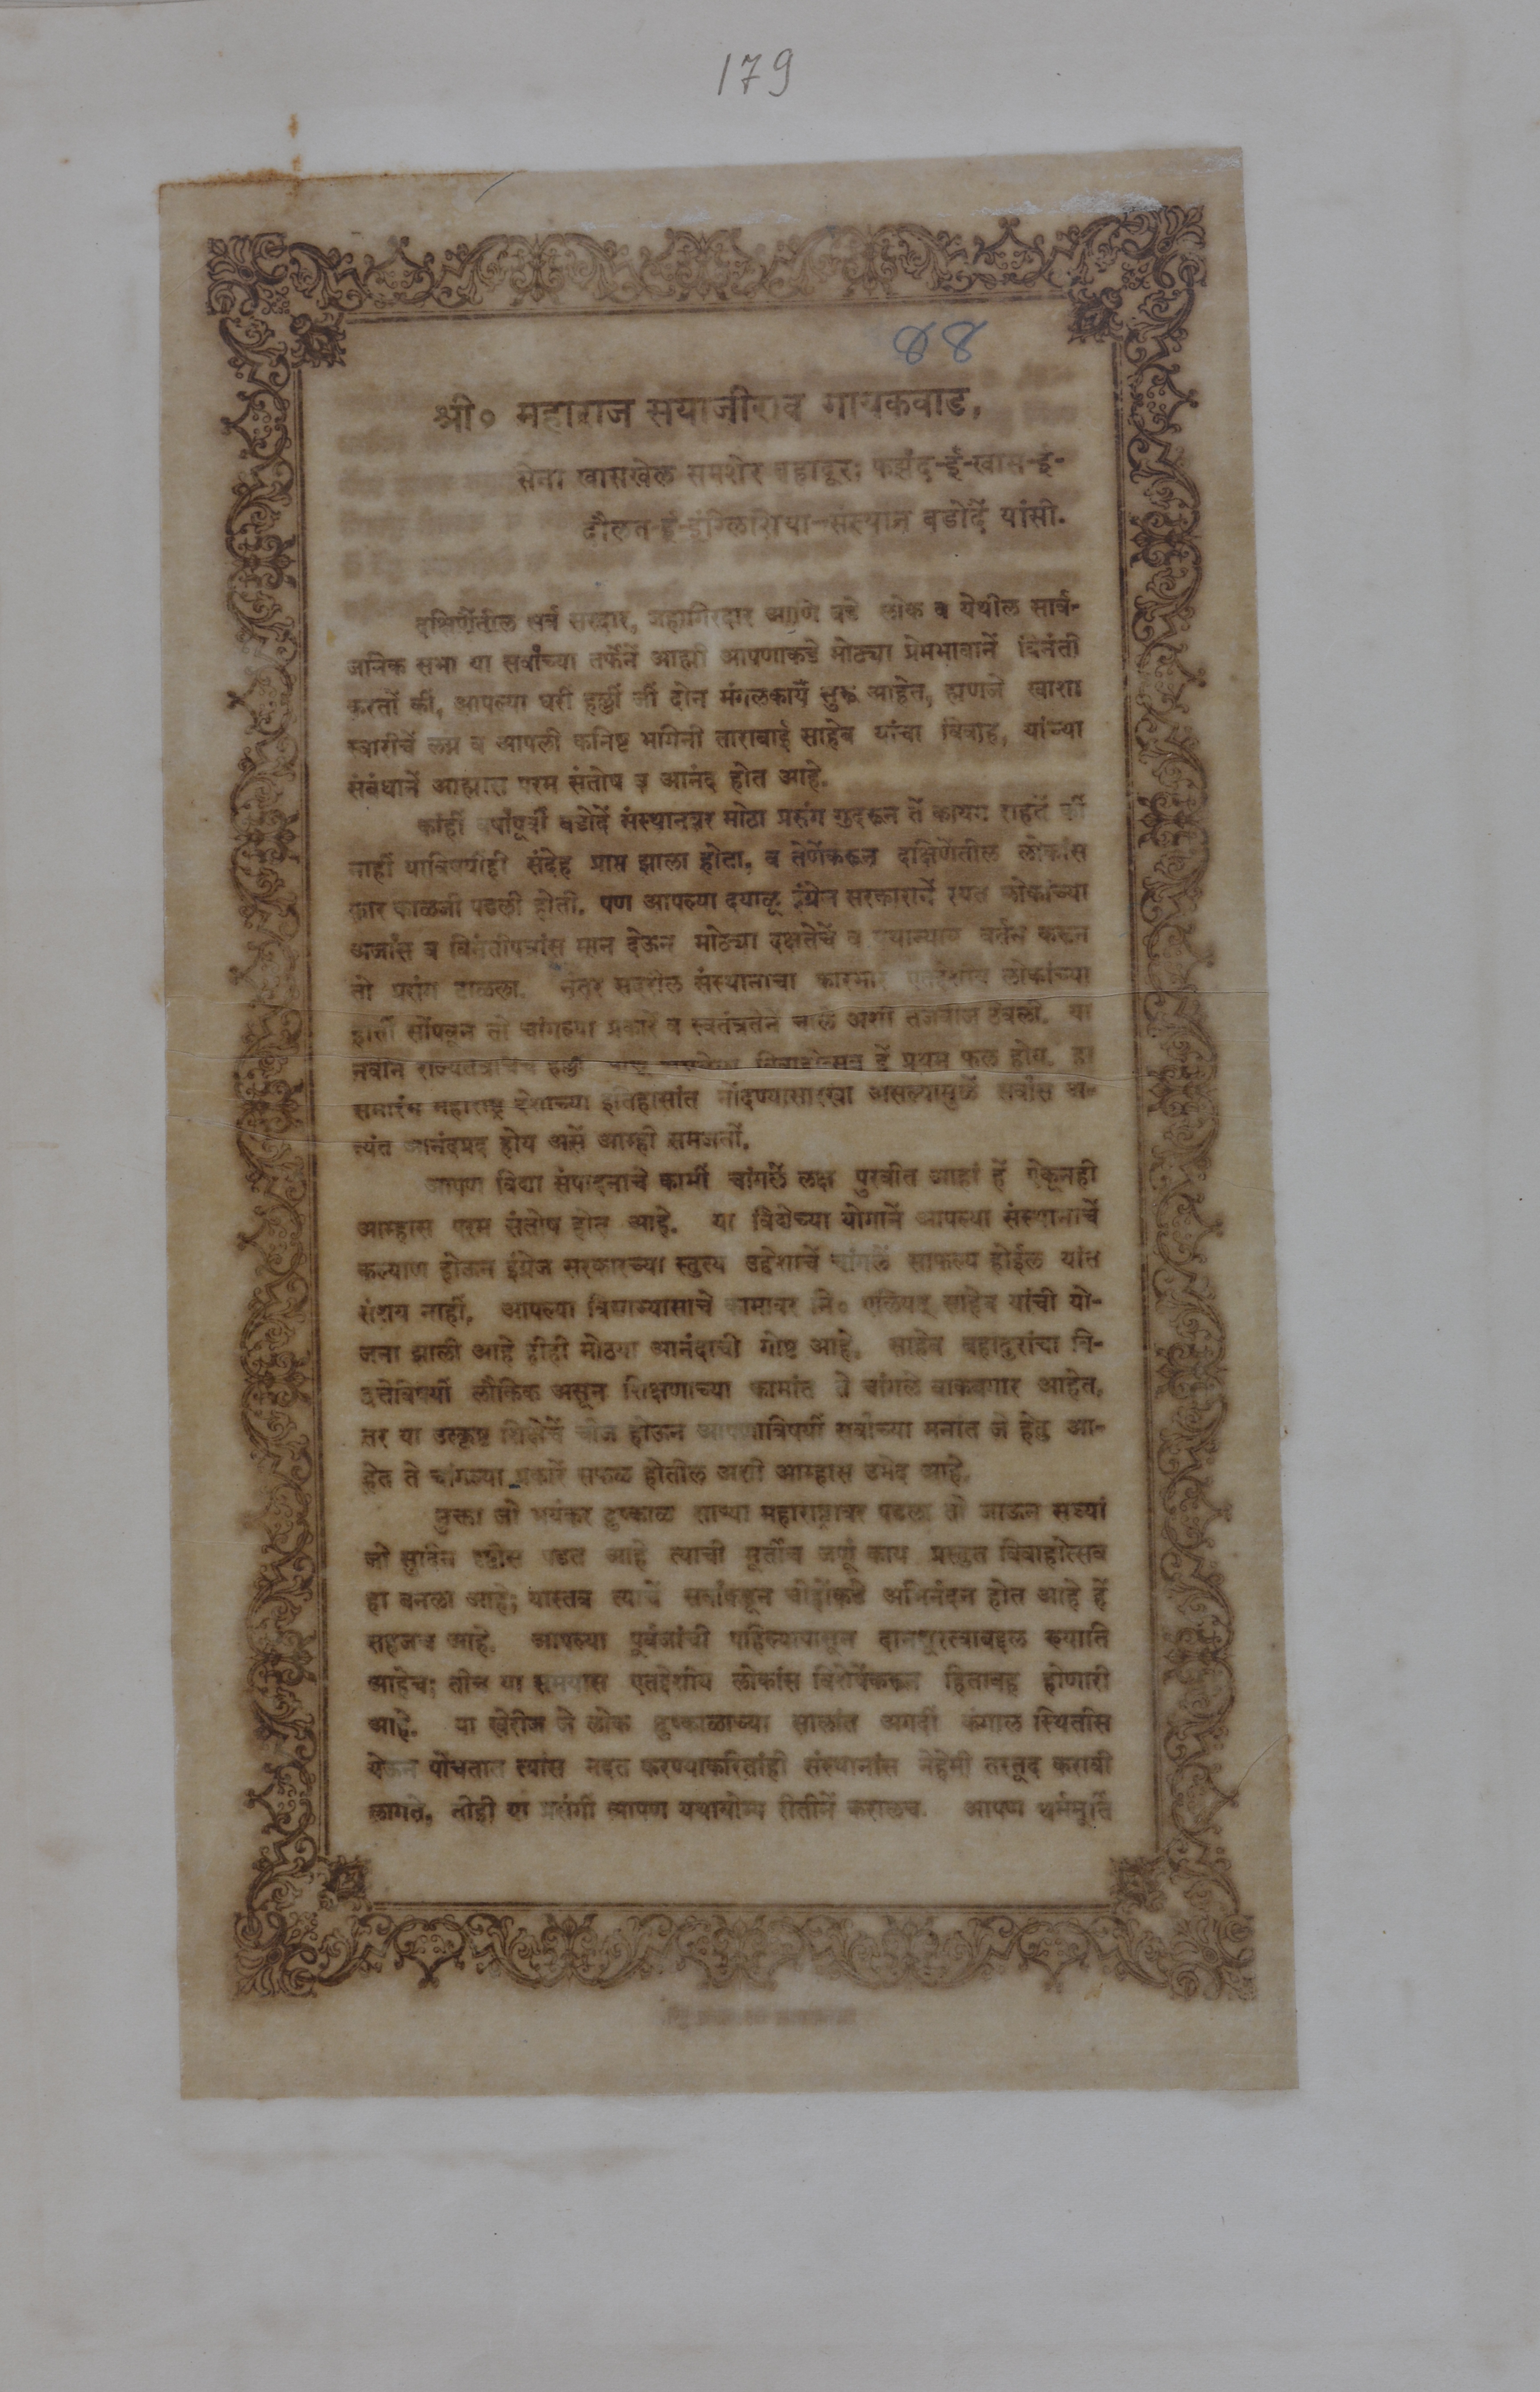 179
88
श्री० महाराज सयाजीराव गायकवाड,
सेना खासखेल समशेर बहादूर; फर्झंद-ई-खास-ई-
दौलत-ई-इंग्लिशिया-संस्थान बडोदें यांसी.
दक्षिणेंतील सर्व सरदार, जहागिरदार आणि बडे लोक व येथील सार्व-
जनिक सभा या सर्वांच्या तर्फेनें आह्मी आपणाकडे मोठ्या प्रेमभावानें विनंती
करतों कीं, आपल्या घरीं हल्लीं जीं दोन मंगलकार्यें सुरू आहेत, ह्मणजे खाशा
स्वारीचें लग्न व आपली कनिष्ट भगिनी ताराबाई साहेब यांचा विवाह, यांच्या
संबंधानें आह्मास परम संतोष व आनंद होत आहे.
कांहीं वर्षांपूर्वी बडोदें संस्थानवर मोठा प्रसंग गुदरून तें कायम राहतें कीं
नाहीं याविषयींही संदेह प्राप्त झाला होता, व तेणेंकरून दक्षिणेंतील लोकांस
फार काळजी पडली होती. पण आपल्या दयाळू इंग्रेज सरकारानें रयत लोकांच्या
अर्जांस व विनंतीपत्रांस मान देऊन मोठ्या दक्षतेचें व वर्तन करून
तो प्रसंग टाळला. नंतर सदरील संस्थानाचा कारभार एतद्देशीय लोकांच्या
हातीं सोंपवून तो चांगल्या प्रकारें व स्वतंत्रतेनें चाले अशी तजवीज ठेवली. या
नवीन राज्यतंत्राचेंच हल्लीं विवाहोत्सव हें प्रथम फल होय. हा
समारंभ महाराष्ट्र देशाच्या इतिहासांत नोंदण्यासारखा असल्यामुळें सर्वांस अ-
त्यंत आनंदप्रद होय असें आम्ही समजतों.
आपण विद्या संपादनाचे कामीं चांगलें लक्ष पुरवीत आहां हें ऐकूनही
आम्हास परम संतोष होत आहे. या विद्येच्या योगानें आपल्या संस्थानाचें
कल्याण होऊन इंग्रेज सरकारच्या स्तुत्य उद्देशाचें चांगलें साफल्य होईल यांत
संशय नाहीं. आपल्या विद्याभ्यासाचे कामावर मे० एलियट् साहेब यांची यो-
जना झाली आहे हीही मोठया आनंदाची गोष्ट आहे. साहेब बहादुरांचा वि-
द्वत्तेविषयीं लौकिक असून शिक्षणाच्या कामांत ते चांगले वाकबगार आहेत,
तर या उत्कृष्ट शिक्षेचें चीज होऊन आपणाविषयीं सर्वांच्या मनांत जे हेतु आ-
हेत ते चांगल्या प्रकारें सफळ होतील अशी आम्हास उमेद आहे.
नुक्ता जो भयंकर दुष्काळ साऱ्या महाराष्ट्रावर पडला तो जाऊन सध्यां
जो सुदिन दृष्टीस पडत आहे त्याची मूर्तीच जणूं काय प्रस्तुत विवाहोत्सव
हा बनला आहे; यास्तव त्याचें सर्वांकडून चोहोंकडे अभिनंदन होत आहे हें
सहजच आहे. आपल्या पूर्वजांची पहिल्यापासून दानशूरत्वाबद्दल ख्याति
आहेच; तीच या समयास एतद्देशीय लोकांस विशेषेंकरून हितावह होणारी
आहे. या खेरीज जे लोक दुष्काळाच्या सालांत अगदीं कंगाल स्थितीस
येऊन पोंचतात त्यांस मदत करण्याकरितांही संस्थानांस नेहेमी तरतूद करावी
लागते, तीही या प्रसंगीं आपण यथायोग्य रीतीनें करालच. आपण धर्ममूर्ति